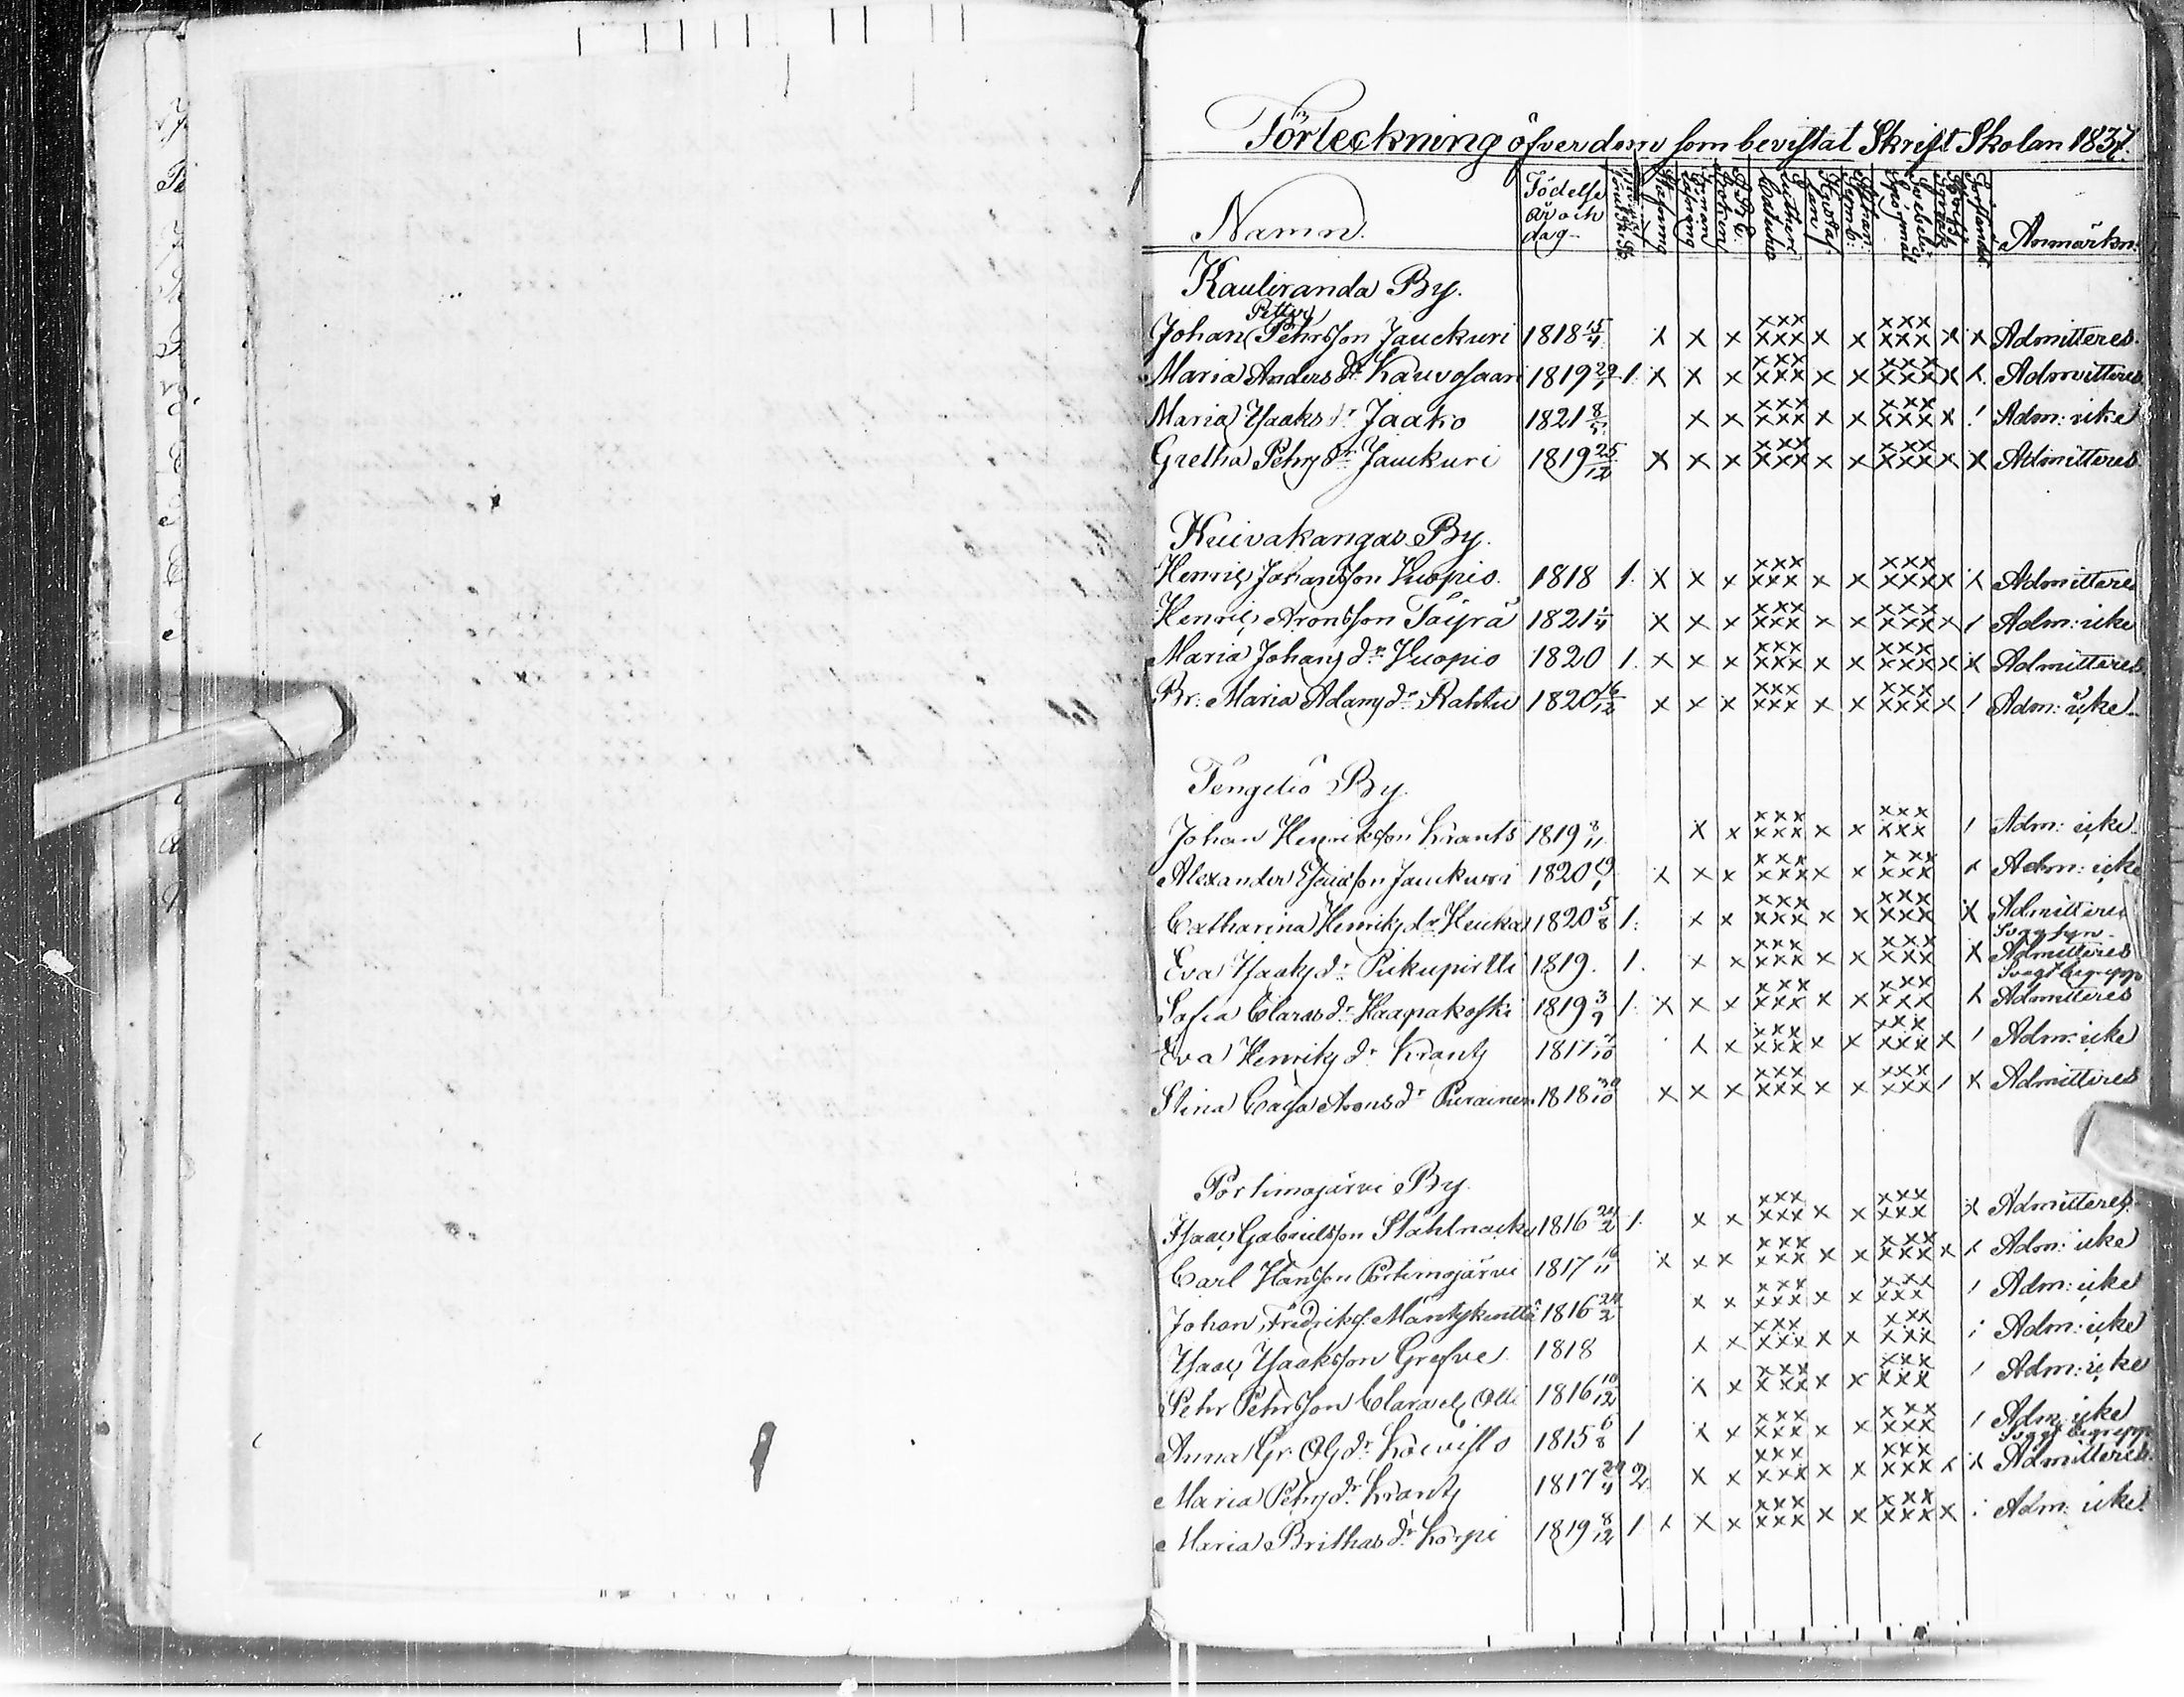 Förteckning öfver dem som bevistat Skrift Skolan 1837.
Namn. Födelse år och dag Anmärkn:
Kauliranda By.
Petter
Johan Pehrsson Jauckuri 1818 15/4 x x x xxx xxx x x xxx xxx x x Admitteres.
Maria Anders dr Kauvosaari 1819 29/1 1. x x x xxx xxx x x xxx xxx x x. Admitteres
Maria Isaaks dr Jaako 1821 8/5 x x xxx xxx x x xxx xxx x / Adm: icke
Gretha Pehrs dr Jauckuri 1819 25/12 x x x xxx xxx x x xxx xxx x x Admitteres
Kuivakangas By.
Henric Johansson Vuopio. 1818 1. x x x xxx xxx x x xxx xxx x x Admitteres
Henric Aronsson Töyrä 1821 1/4 x x x xxx xxx x x xxx xxx x / Adm: icke
Maria Johans dr Vuopio 1820 1. x x x xxx xxx x x xxx xxx x x Admitteres.
Br: Maria Adams dr Rahtu 1820 16/12 x x x xxx xxx x x xxx xxx x / Adm: icke
Tengeliö By.
Johan Henriksson Krants 1819 8/11 x x xxx xxx x x xxx xxx / Adm: icke
Alexander Esaiasson Jauckuri 1820 19/1 x x x xxx xxx x x xxx xxx x Adm: icke
Catharina Henriks dr Heikas 1820 5/8 1. x x xxx xxx x x xxx xxx x Admitteres
Svag syn.
Eva Isaaks dr Pikupirtti 1819. 1. x x xxx xxx x x xxx xxx x Admitteres
Svagt begrepp
Sofia Claras dr Haapakoski 1819 3/9 1. x x x xxx xxx x x xxx xxx x Admitteres
Eva Henriks dr Krants 1817 7/10 x x xxx xxx x x xxx xxx x / Adm: icke
Stina Cajsa Arons dr Purainen 1818 30/10 x x x xxx xxx x x xxx xxx / x Admitteres
Portimojärvi By.
Isaac Gabrielsson Stålnacke 1816 24/2 1. x x xxx xxx x x xxx xxx x Admitteres.
Carl Hansson Portimojärvi 1817 16/11 x x x xxx xxx x x xxx xxx x x Adm: icke
Johan Fredriks: Mäntykenttä 1816 24/2 x x xxx xxx x x xxx xxx / Adm: icke
Isaac Isaaksson Grefve 1818 x x xxx xxx x x xxx xxx / Adm: icke
Pehr Pehrsson Olli 1816 10/12 x x xxx xxx x x xxx xxx / Adm: icke
Anna Gr: Ols dr Koivisto 1815 6/8 1 x x xxx xxx x x xxx xxx / Adm: icke
Svagt begrepp
Maria Pehrs dr Krants 1817 29/11 2. x x xxx xxx x x xxx xxx x x Admitteres.
Maria Brithas dr Korpi 1819 8/12 1 x x x xxx xxx x x xxx xxx x / Adm: icke